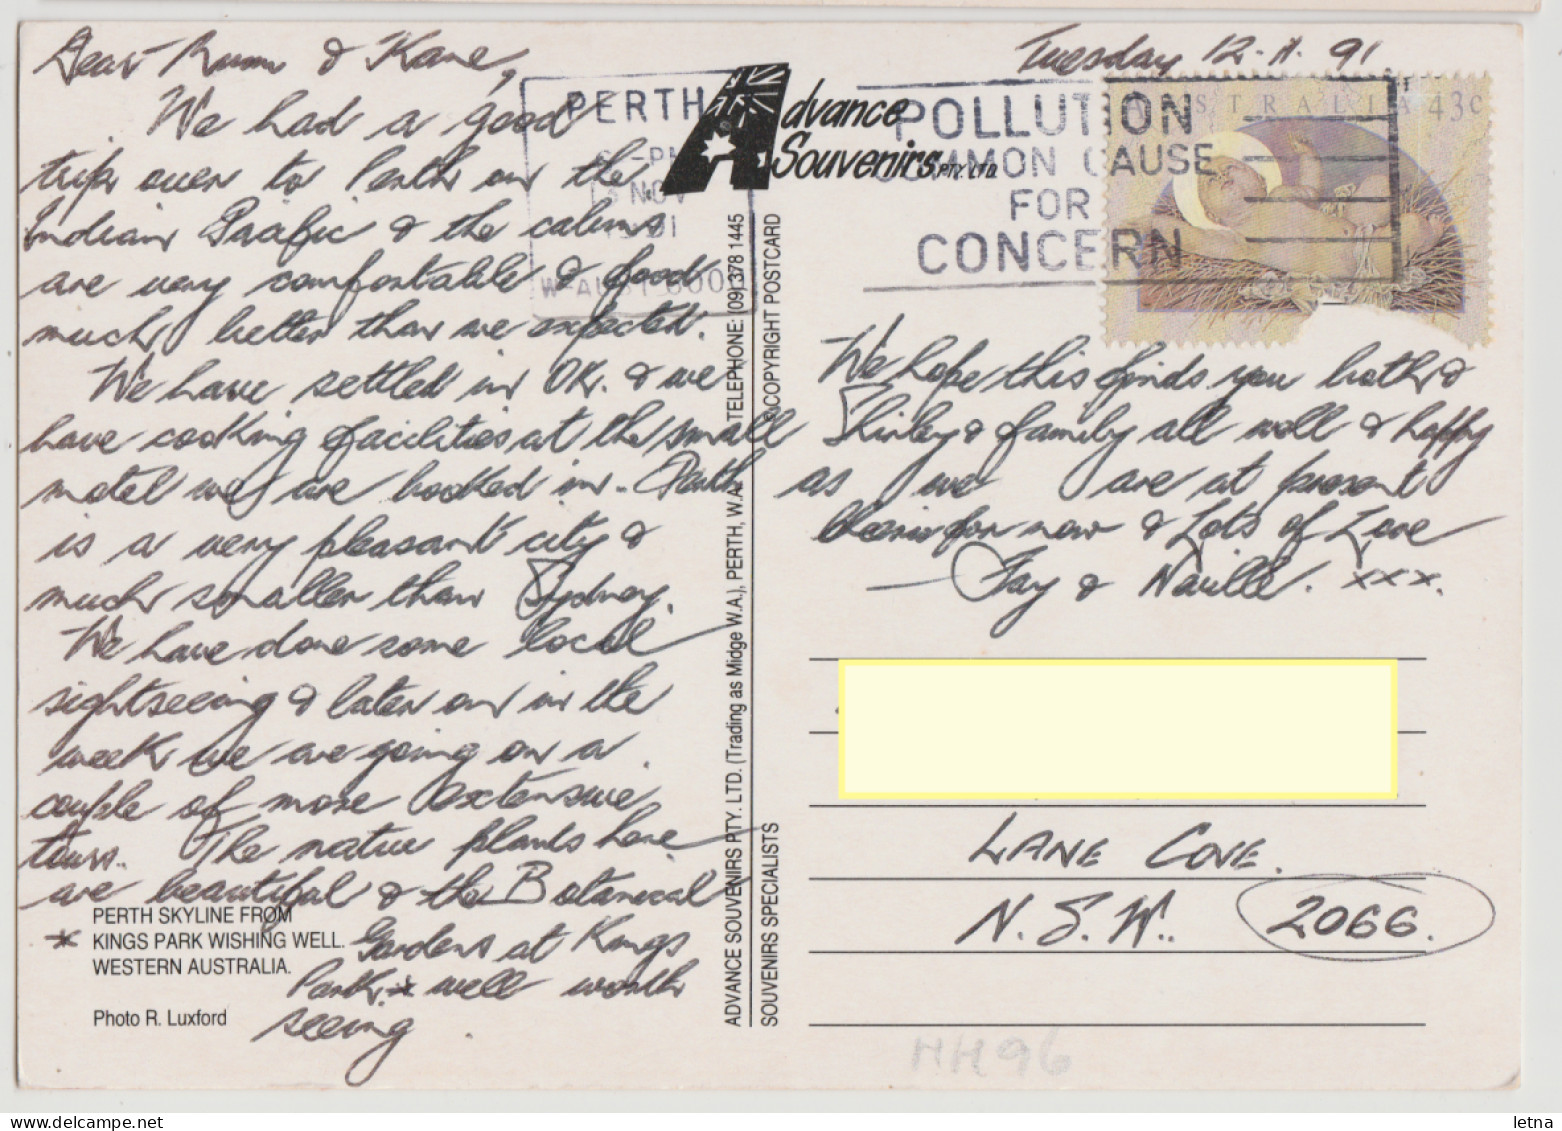 Tuesday 12.11.91
Dear Mum & Kane,
We had a good
trip over to Perth on the
Indian Pacific & the cabins
are very comfortable & food
much better than we expected.
We have settled in OK. & we
have cooking facilities at the small
motel we are booked in. Perth
is a very pleasant city &
much smaller than Sydney.
We have done some local
sightseeing & later on in the
week we are going on a
couple of more extensive
tours. The native plants here
are beautiful & the Botanical
Gardens at Kings
Park * well worth
seeing
PERTH SKYLINE FROM
* KINGS PARK WISHING WELL.
WESTERN AUSTRALIA.
Photo R. Luxford
ADVANCE SOUVENIRS PTY. LTD. (Trading as Midge W.A.), PERTH, W.A. TELEPHONE: (09) 378 1445
SOUVENIRS SPECIALISTS
© COPYRIGHT POSTCARD
Advance
Souvenirs PTY. LTD.
PERTH
PM
NOV
W-AUST 600
POLLUTION
COMMON CAUSE
FOR
CONCERN
AUSTRALIA 43c
We hope this finds you both &
Shirley & family all well & happy
as we are at present
Cheerio for now & Lots of Love
— Fay & Neville. xxx.
LANE COVE.
N.S.W. 2066.
HH96
letna